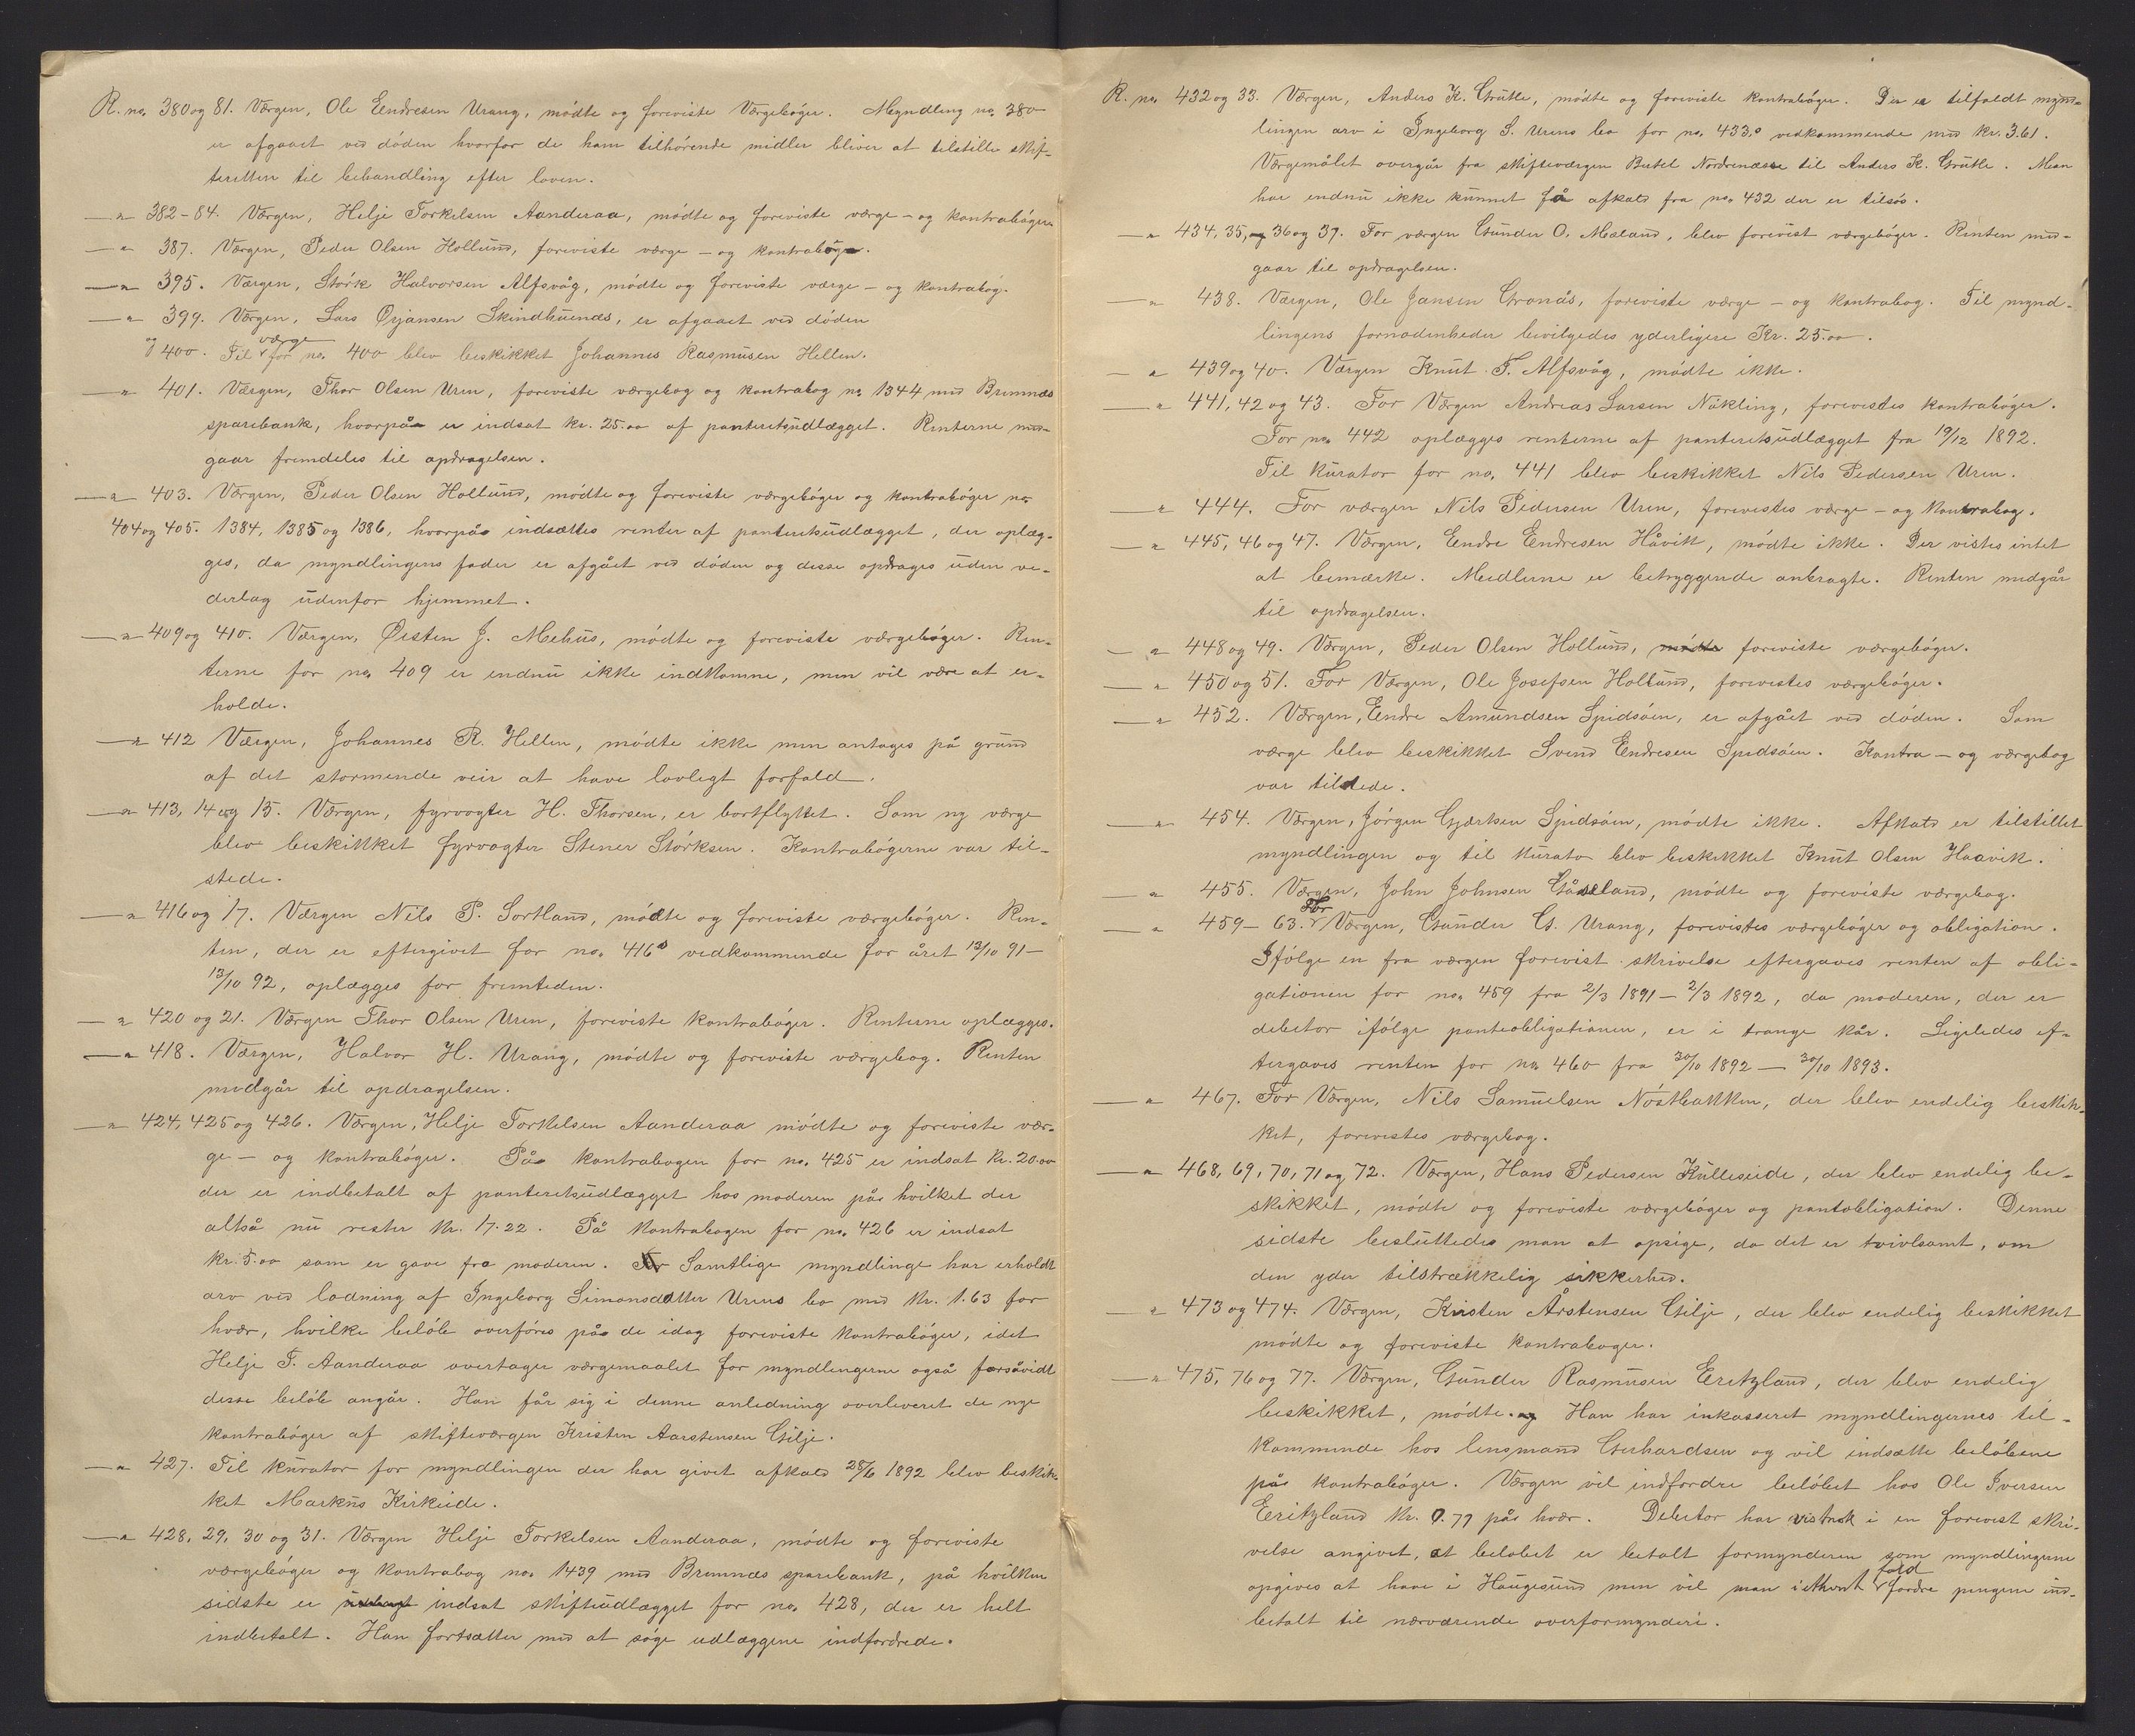 R. no. 380 og 81. Værgen, Ole Endresen Urang, mödte og foreviste Værgebøger. Myndling no. 380
er afgaaet ved döden hvorfor de ham tilhörende midler bliver at tilstille skif-
teretten til behandling efter loven.
—"— 382-84. Værgen, Helje Torkelsen Aanderaa, mödte og foreviste værge- og kontrabøger.
—"— 387. Værgen, Peder Olsen Hollund, foreviste værge- og kontrabøger.
—"— 395. Værgen, Störk Halvorsen Alfsvåg, mödte og foreviste værge- og kontrabog.
—"— 399. Værgen, Lars Örjansen Skindhuenæs, er afgaaet ved döden
og 400. Til værge for no. 400 blev beskikket Johannes Rasmusen Hellen.
—"— 401. Værgen, Thor Olsen Uren, foreviste værgebog og kontrabog no. 1344 med Bremnæs
sparebank, hvorpå er indsat kr. 25.00 af panteretsudlægget. Renterne med-
gaar fremdeles til opdragelsen.
—"— 403. Værgen, Peder Olsen Hollund, mödte og foreviste værgebøger og kontrabøger no.
404 og 405. 1384, 1385 og 1386, hvorpå indsættes renter af panteretsudlægget, der oplæg-
ges, da myndlingens fader er afgået ved döden og disse opdrages uden ve-
derlag udenfor hjemmet.
—"— 409 og 410. Værgen, Østen J. Mehus, mödte og foreviste værgebøger. Ren-
terne for no. 409 er endnu ikke indkomne, men vil være at er-
holde.
—"— 412 Værgen, Johannes R. Hellen, mödte ikke men antages på grund
af det stormende veir at have lovligt forfald.
—"— 413, 14 og 15. Værgen, fyrvogter H. Thorsen, er bortflyttet. Som ny værge
blev beskikket fyrvogter Stener Störksen. Kontrabögerne var til-
stede.
—"— 416 og 17. Værgen Nils P. Sortland, mödte og foreviste værgebøger. Ren-
ten, der er eftergivet for no. 416s vedkommende for året 13/10 91 —
13/10 92, oplægges for fremtiden.
—"— 420 og 21. Værgen Thor Olsen Uren, foreviste kontrabøger. Renterne oplægges.
—"— 418. Værgen, Halvor H. Urang, mödte og foreviste værgebog. Renten
medgår til opdragelsen.
—"— 424, 425 og 426. Værgen, Helje Torkelsen Aanderaa mödte og foreviste vær-
ge- og kontrabøger. På kontrabogen for no. 425 er indsat kr. 20.00
der er indbetalt af panteretsudlægget hos moderen på hvilket der
altså nu rester kr. 17.22. På kontrabogen for no. 426 er indsat
kr. 5.00 som er gave fra moderen. Samtlige myndlinge har erholdt
arv ved lodning af Ingeborg Simonsdatter Urens bo med kr. 1.63 for
hvær, hvilke belöb overföres på de idag foreviste kontrabøger, idet
Helje T. Aanderaa overtager værgemaalet for myndlingerne også forsåvidt
disse belöb angår. Han får sig i denne anledning overleveret de nye
kontrabøger af skifteværgen Kristen Aarstensen Gilje.
—"— 427. Til kurator for myndlingen der har givet afkald 28/6 1892 blev beskik-
ket Markus Kirkeide.
—"— 428, 29, 30 og 31. Værgen Helje Torkelsen Aanderaa, mödte og foreviste
værgebøger og kontrabog no. 1439 med Bremnæs sparebank, på hvilken
sidste er indsat skifteudlægget for no. 428, der er helt
indbetalt. Han fortsætter med at søge udlæggene indfordrede.
R. no. 432 og 33. Værgen, Anders K. Grutle, mödte og foreviste kontrabøger. Der er tilfaldt mynd-
lingen arv i Ingeborg S. Urens bo for no. 433s vedkommende med kr. 3.61.
Værgemålet overgår fra skifteværgen Butel Nordrenæsse til Anders K. Grutle. Man
har endnu ikke kunnet få afkald fra no. 432 der er tilsøs.
—"— 434, 35, 36 og 37. For værgen Gunder O. Mæland, blev forevist værgebøger. Renten med-
gaar til opdragelsen.
—"— 438. Værgen, Ole Jansen Gronås, foreviste værge- og kontrabog. Til mynd-
lingens fornødenheder bevilgedes yderligere Kr. 25.00.
—"— 439 og 40. Værgen Knut T. Alfsvåg, mödte ikke.
—"— 441, 42 og 43. For Værgen Andreas Larsen Nükling, forevistes kontrabøger.
For no. 442 oplægges renterne af panteretsudlægget fra 19/12 1892.
Til kurator for no. 441 blev beskikket Nils Pedersen Uren.
—"— 444. For værgen Nils Pedersen Uren, forevistes værge- og kontrabog.
—"— 445, 46 og 47. Værgen, Endre Endresen Håvik, mödte ikke. Der vistes intet
at bemærke. Midlerne er betryggende anbragte. Renten medgår
til opdragelsen.
—"— 448 og 49. Værgen, Peder Olsen Hollund, mödte foreviste værgebøger.
—"— 450 og 51. For Værgen, Ole Josefsen Hollund, forevistes værgebøger.
—"— 452. Værgen, Endre Amundsen Spidsöen, er afgået ved döden. Som
værge blev beskikket Svend Endresen Spidsöen. Kontra- og værgebog
var tilstede.
—"— 454. Værgen, Jörgen Gjertsen Spidsöen, mödte ikke. Afkald er tilstillet
myndlingen og til kurator blev beskikket Knut Olsen Haavik.
—"— 455. Værgen, John Johnsen Gåseland, mödte og foreviste værgebog.
—"— 459 — 63. For Værgen, Gunder G. Urang, forevistes værgebøger og obligation.
Ifölge en fra værgen forevist skrivelse eftergaves renten af obli-
gationen for no. 459 fra 2/3 1891 — 2/3 1892, da moderen, der er
debitor ifölge panteobligationen, er i trange kår. Ligeledes ef-
tergaves renten for no. 460 fra 30/10 1892 — 30/10 1893.
—"— 467. For Værgen, Nils Samuelsen Nöstbakken, der blev endelig beskik-
ket, forevistes værgebog.
—"— 468, 69, 70, 71 og 72. Værgen, Hans Pedersen Kulleseide, der blev endelig be-
skikket, mödte og foreviste værgebøger og pantobligation. Denne
sidste besluttedes man at opsige, da det er tvivlsomt, om
den yder tilstrækkelig sikkerhed.
—"— 473 og 474. Værgen, Kristen Årstensen Gilje, der blev endelig beskikket
mödte og foreviste kontrabøger.
—"— 475, 76 og 77. Værgen, Gunder Rasmusen Eritzland, der blev endelig
beskikket, mödte. Han har inkasseret myndlingernes til-
kommende hos lensmand Gerhardsen og vil indsætte belöbene
på kontrabøger. Værgen vil indfordre belöbet hos Ole Iversen
Eeritzland Kr. 0.79 på hvær. Debitor har vistnok i en forevist skri-
velse angivet, at belöbet er betalt formynderen som myndlingerne
opgives at have i Haugesund men vil man i ethvert fald fordre pengene ind-
betalt til nærværende overformynderi.